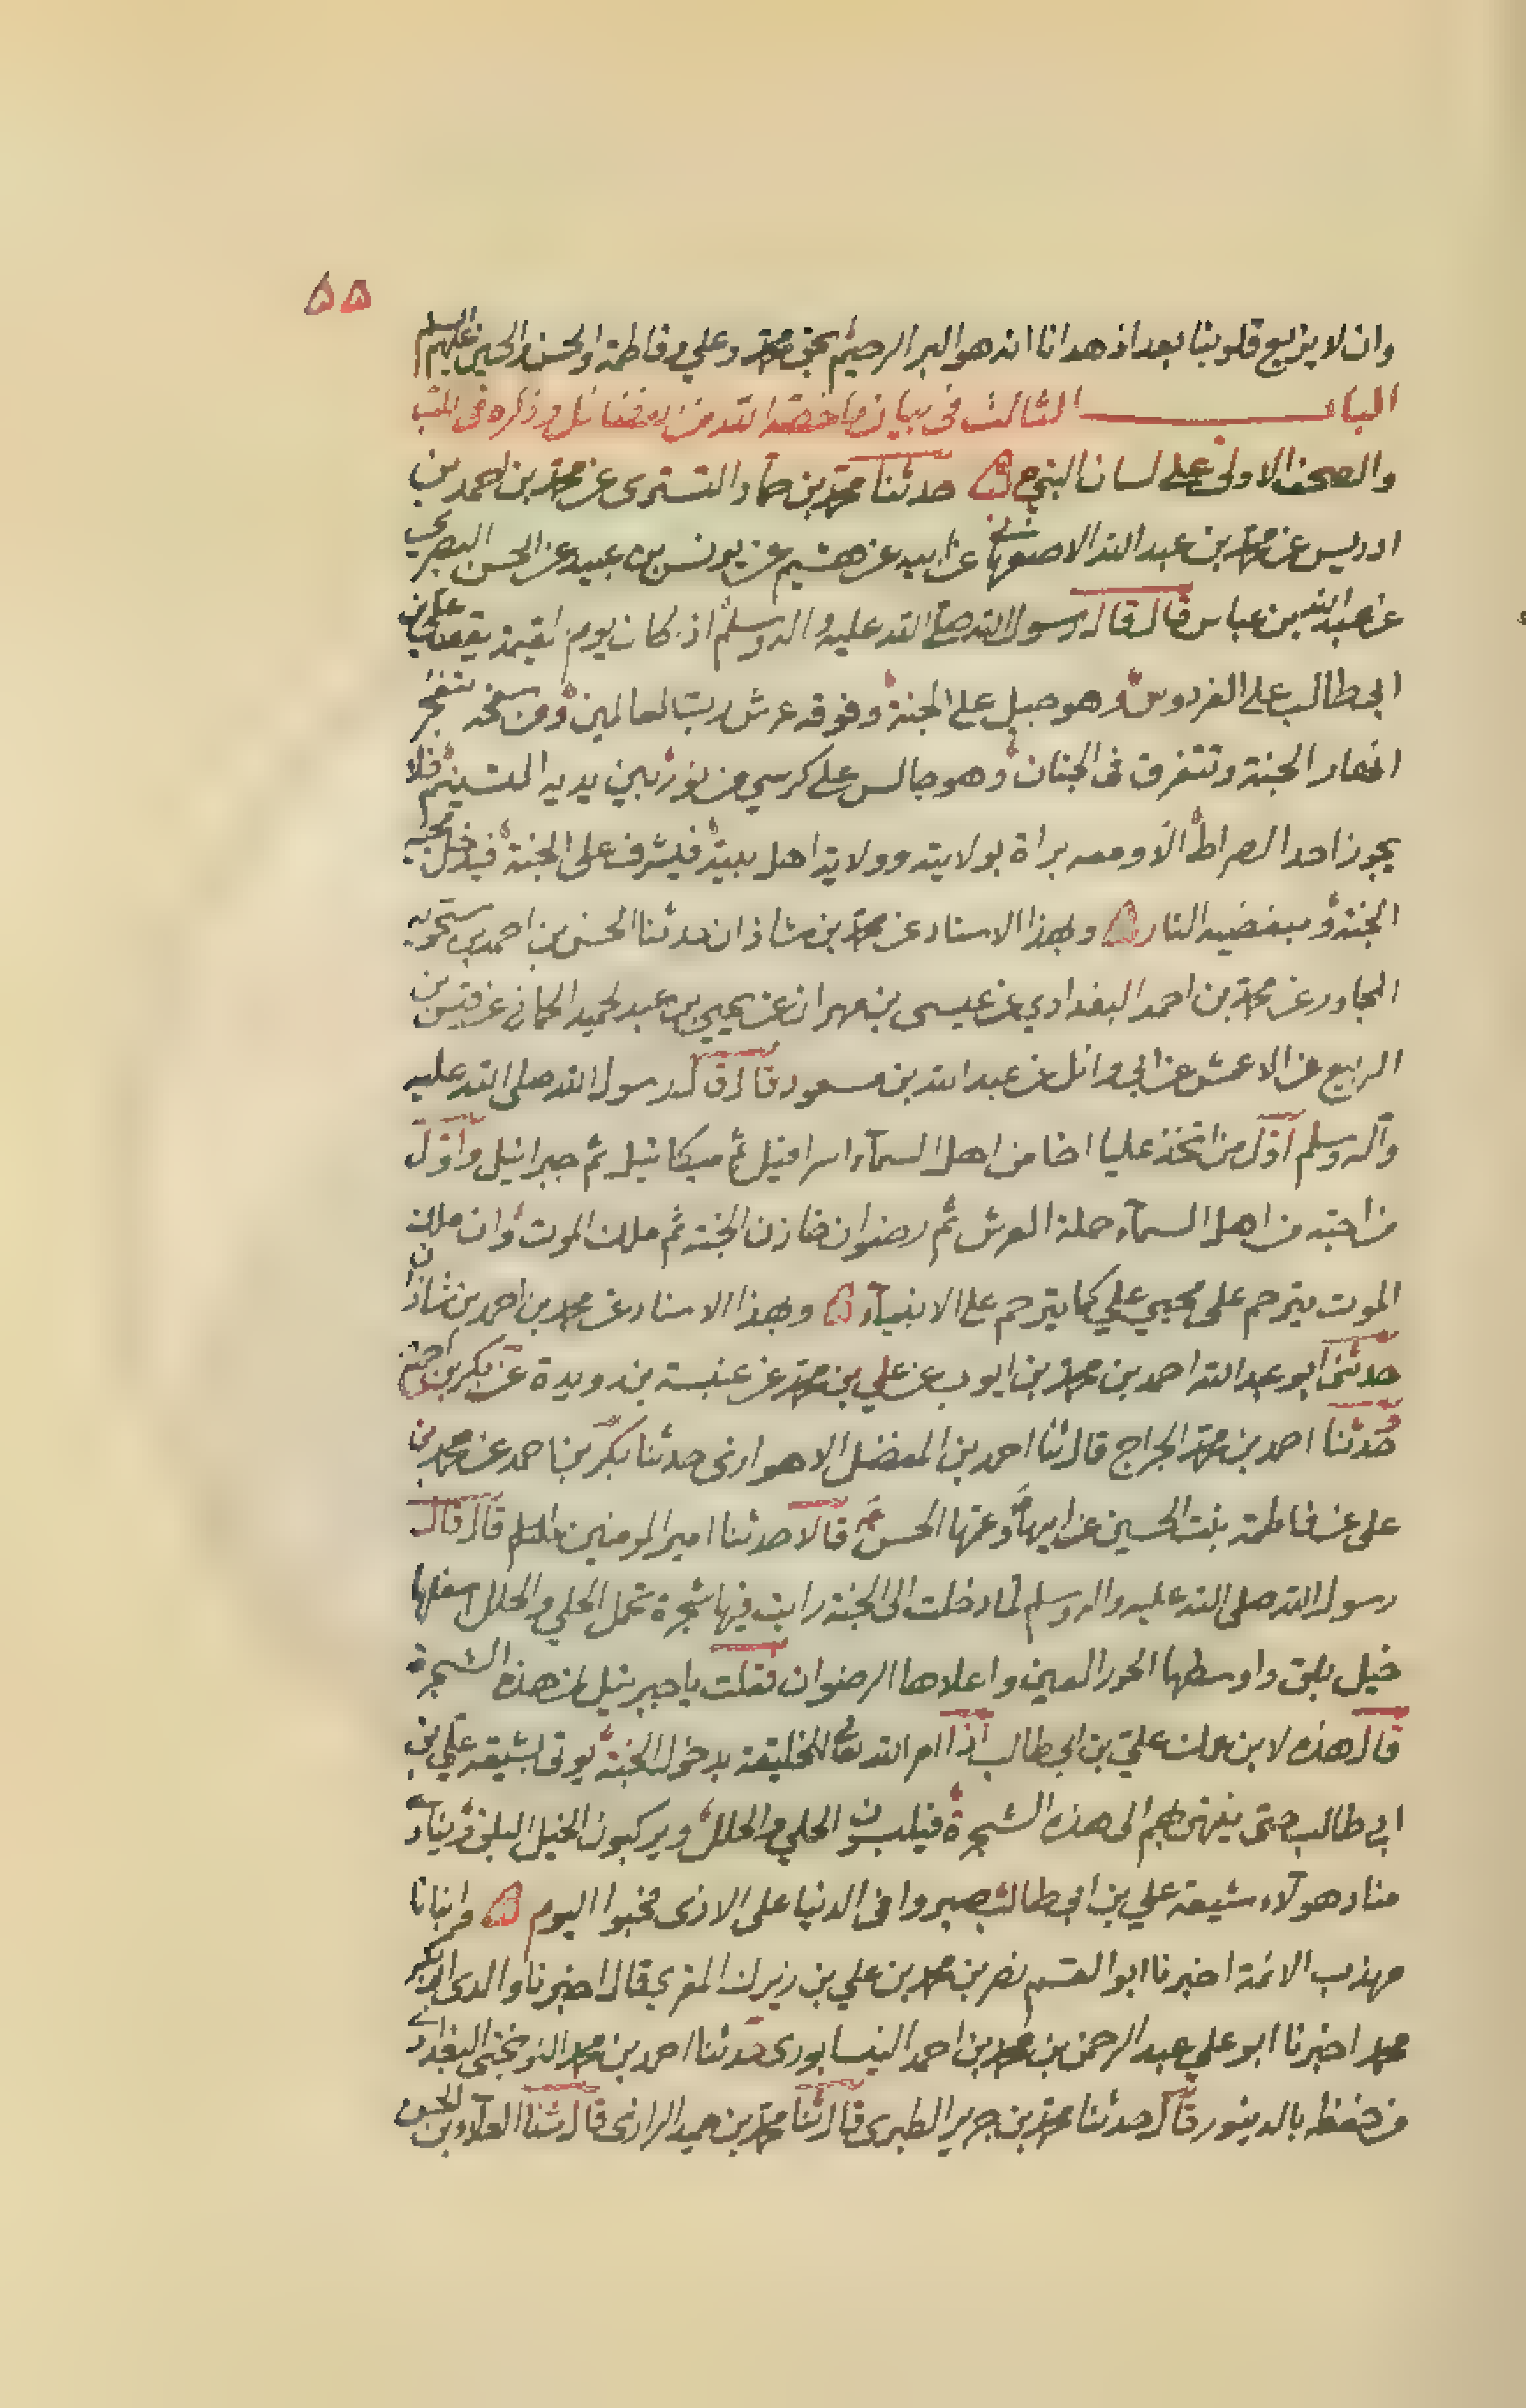 ٥٥
وان لا يزيع قلوبنا بعد اذ هدانا انه هو البر الرحيم بحق محمد وعلي وفاطمة والحسن والحسين عليهم السلم
الباب الثالث فى بيان ما خصه الله من الفضائل وذكره فى الكتب
والصحف الاولى على لسان النبي ص حدثنا محمد بن حماد التسترى عن محمد بن احمد بن
ادريس عن محمد بن عبد الله الاصفهاني عن ابيه عن هشيم عن يونس بن عبيد عن الحسن البصري
عن عبد الله بن عباس قال قال رسول الله صلى الله عليه واله وسلم اذ كان يوم القيمة يقعد علي بن
ابي طالب على الفردوس وهو جبل على الجنة وفوقه عرش رب العالمين ومن سفحه تنفجر
انهار الجنة وتتفرق فى الجنان وهو جالس على كرسي من نور بين يديه التسنيم فلا
يجوز احد الصراط الا ومعه براة بولايته وولاية اهل بيته فيشرف على الجنة فيدخل محبيه
الجنة ومبغضيه النار وبهذا الاسناد عن محمد بن شاذان حدثنا الحسن بن احمد بن سختويه
المجاور عن محمد بن احمد البغدادي عن عيسى بن مهران عن يحيي بن عبد الحميد الحماني عن قيس بن
الربيع عن الاعمش عن ابي وائل عن عبد الله بن مسعود قال قال رسول الله صلى الله عليه
وآله وسلم اول من اتخذ عليا اخا من اهل السمآء اسرافيل ثم ميكائيل ثم جبرائيل واول
من احبه من اهل السمآء حملة العرش ثم رضوان خازن الجنة ثم ملك الموت وان ملك
الموت يترحم على محبي علي كما يترحم على الانبيآء وبهذا الاسناد عن محمد بن احمد بن شاذان
حدثنى ابو عبد الله احمد بن محمد بن ايوب عن علي بن محمد عن عنبسة بن رويدة عن بكر بن احمد
حدثنا احمد بن محمد الجراح قال ثنا احمد بن المفضل الاهوازى حدثنا بكر بن احمد عن محمد بن
على عن فاطمة بنت الحسين عن ابيها وعمها الحسن ع قالا حدثنا امير المومنين عليه السلم قال قال
رسول الله صلى الله عليه واله وسلم لما دخلت الى الجنة رايت فيها شجرة تحمل الحلي والحلل اسفلها
خيل بلق واوسطها الحور العين واعلاها الرضوان فقلت يا جبرئيل لمن هذه الشجرة
قال هذه لابن عمك علي بن ابي طالب اذا امر الله تعالى للخليقة بدخول الجنة يوتى بشيعة علي بن
ابي طالب حتى ينتهى بهم الى هذه الشجرة فيلبسون الحلي والحلل ويركبون الخيل البلق وينادى
مناد هولآء شيعة علي بن ابي طالب صبروا فى الدنيا على الاذى فحبوا اليوم وانبانا
مهذب الائمة اخبرنا ابو القسم نصر بن محمد بن علي بن زيرك المقرى قال اخبرنا والدى ابو بكر
محمد اخبرنا ابو علي عبد الرحمن بن محمد بن احمد النيسابورى حدثنا احمد بن محمد النوبختى البغدادي
من حفظه بالدينور قال حدثنا محمد بن جرير الطبرى قال ثنا محمد بن حميد الرازى قال ثنا العلاء بن الحسين